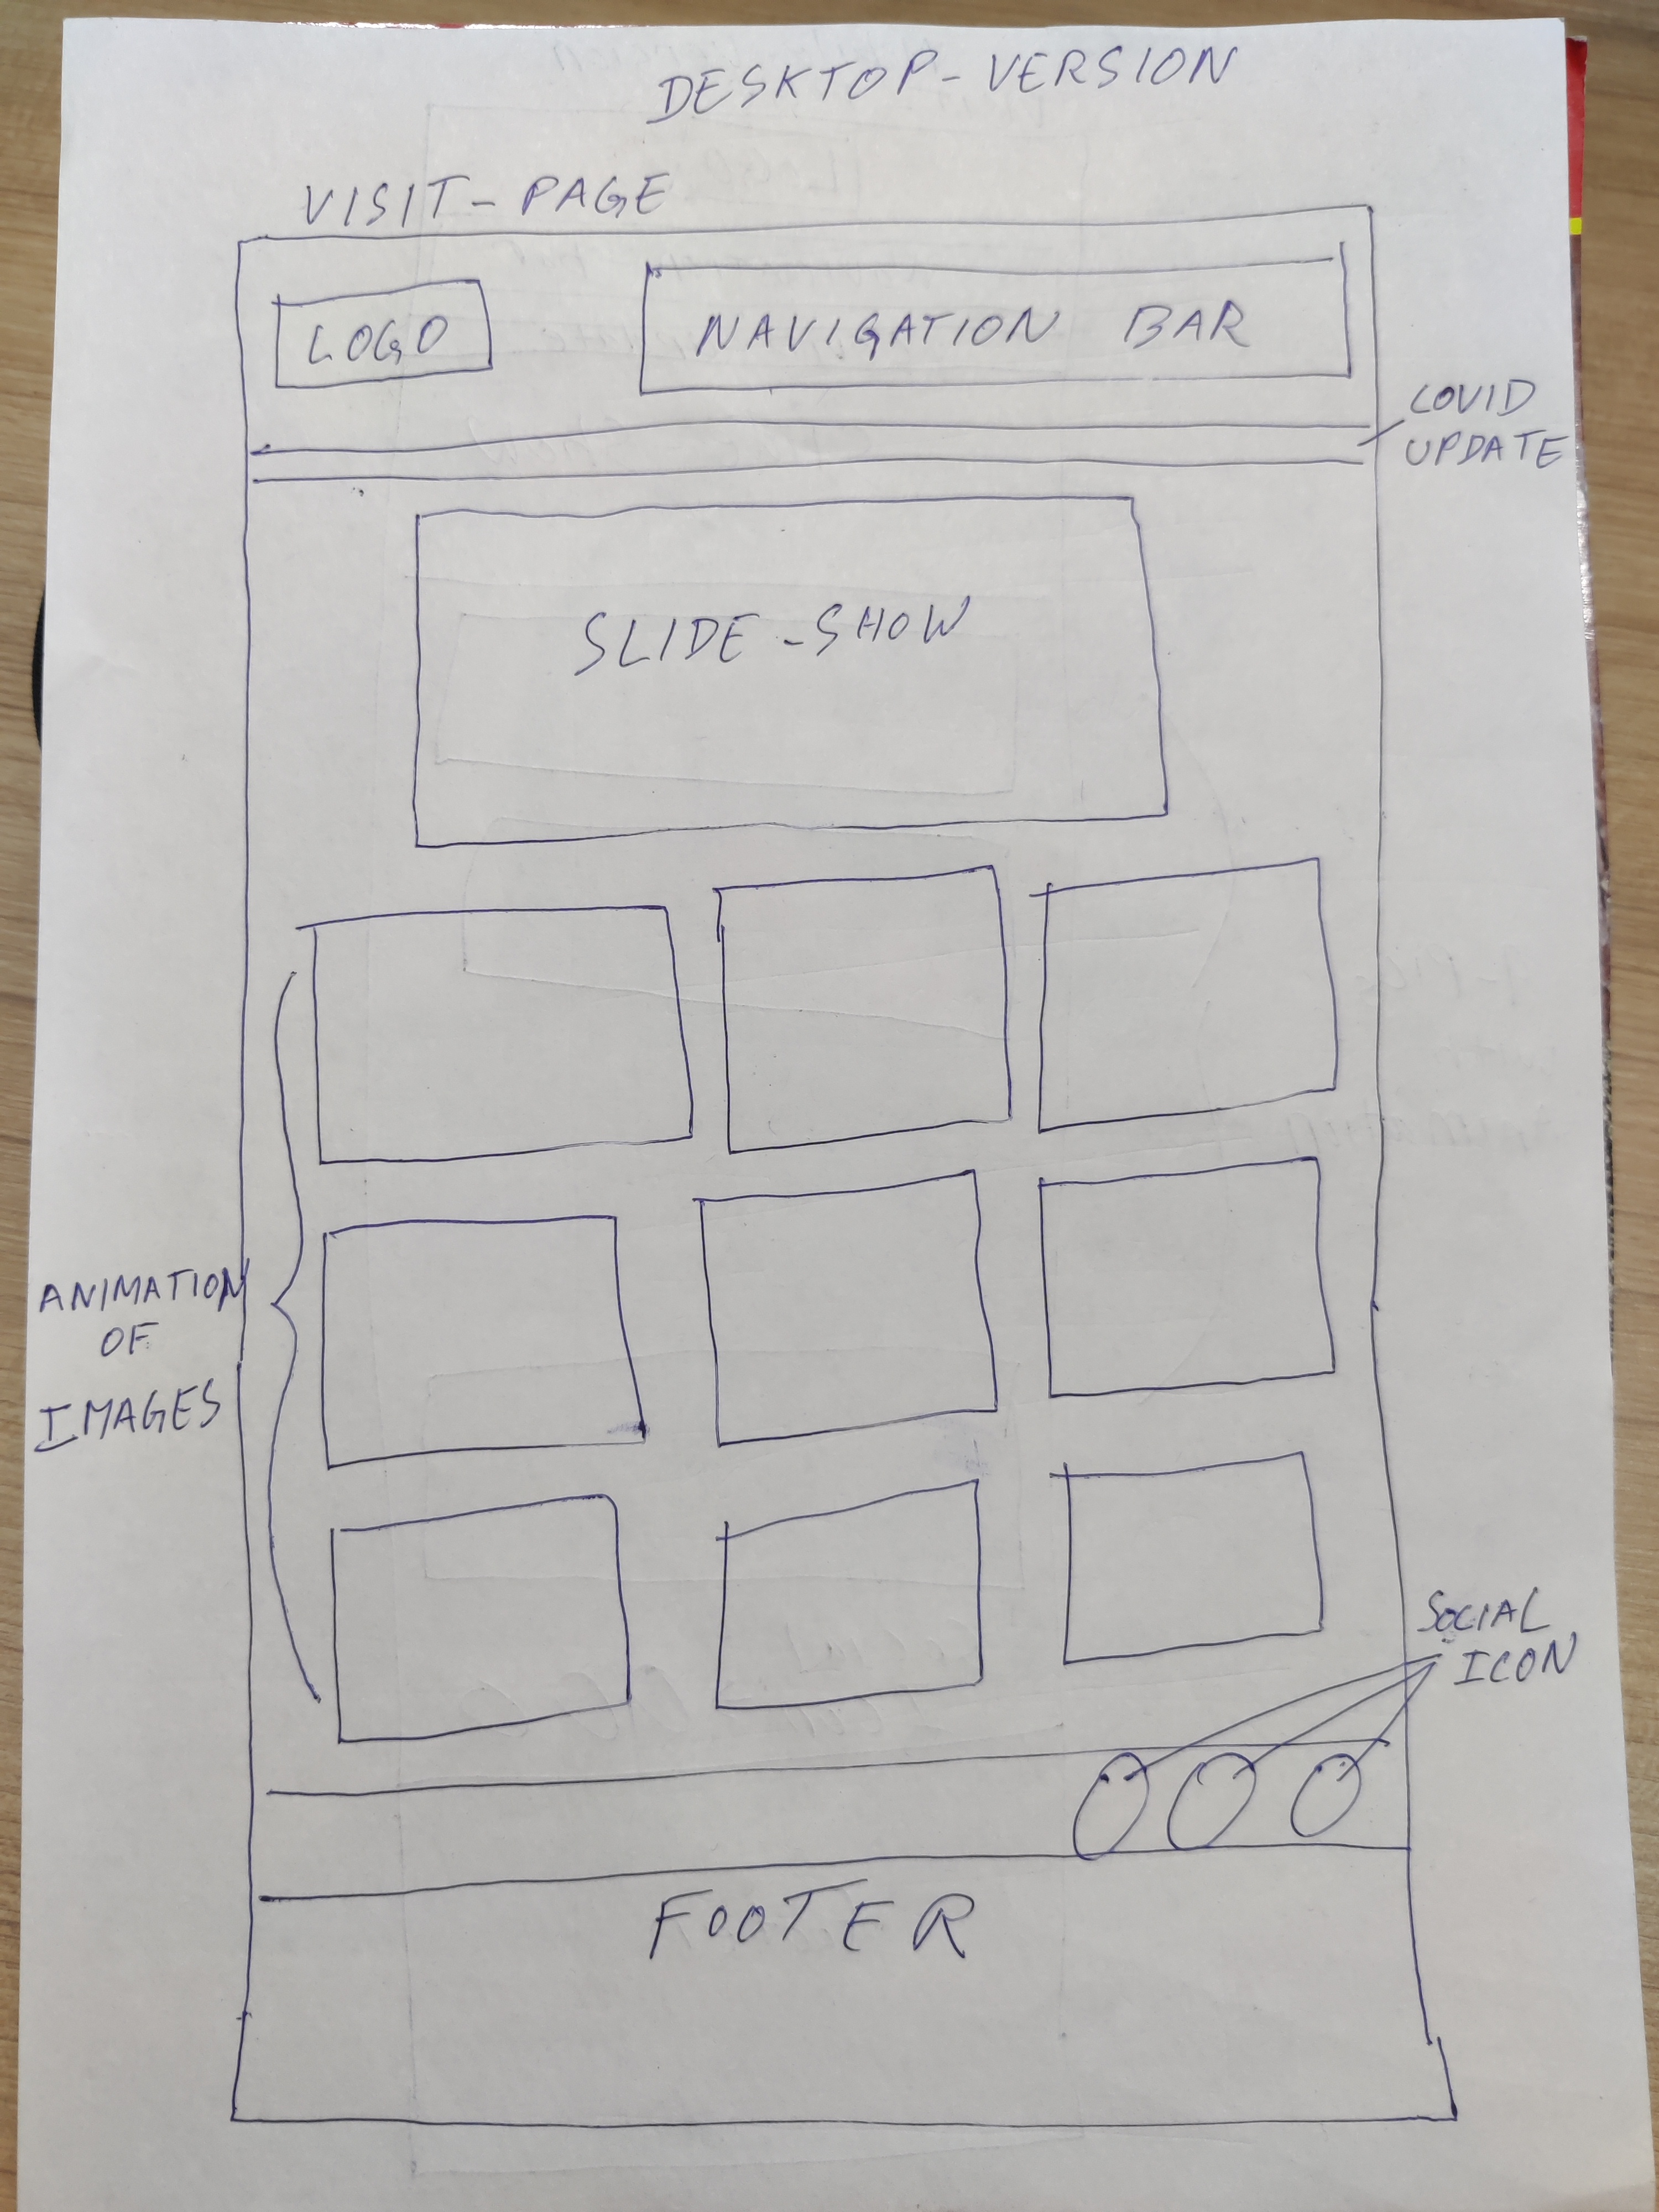 DESKTOP-VERSION
VISIT-PAGE
LOGO
NAVIGATION BAR
COVID
UPDATE
SLIDE-SHOW
ANIMATION
OF
IMAGES
SOCIAL
ICON
FOOTER